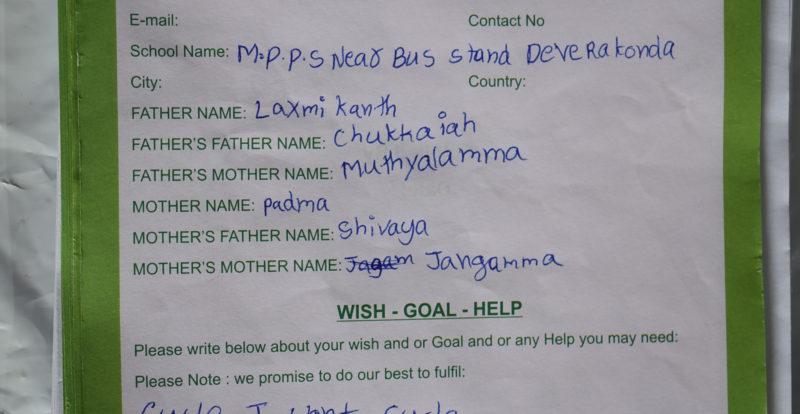 E-mail: Contact No
School Name: M.P.P.S Near Bus stand DeveRakonda
City: Country:
FATHER NAME: Laxmi kanth
FATHER'S FATHER NAME: Chukkaiah
FATHER'S MOTHER NAME: Muthyalamma
MOTHER NAME: padma
MOTHER'S FATHER NAME: Shivaya
MOTHER'S MOTHER NAME: Jagam Jangamma
WISH - GOAL - HELP
Please write below about your wish and or Goal and or any Help you may need:
Please Note : we promise to do our best to fulfil:
Cycle I want cycle